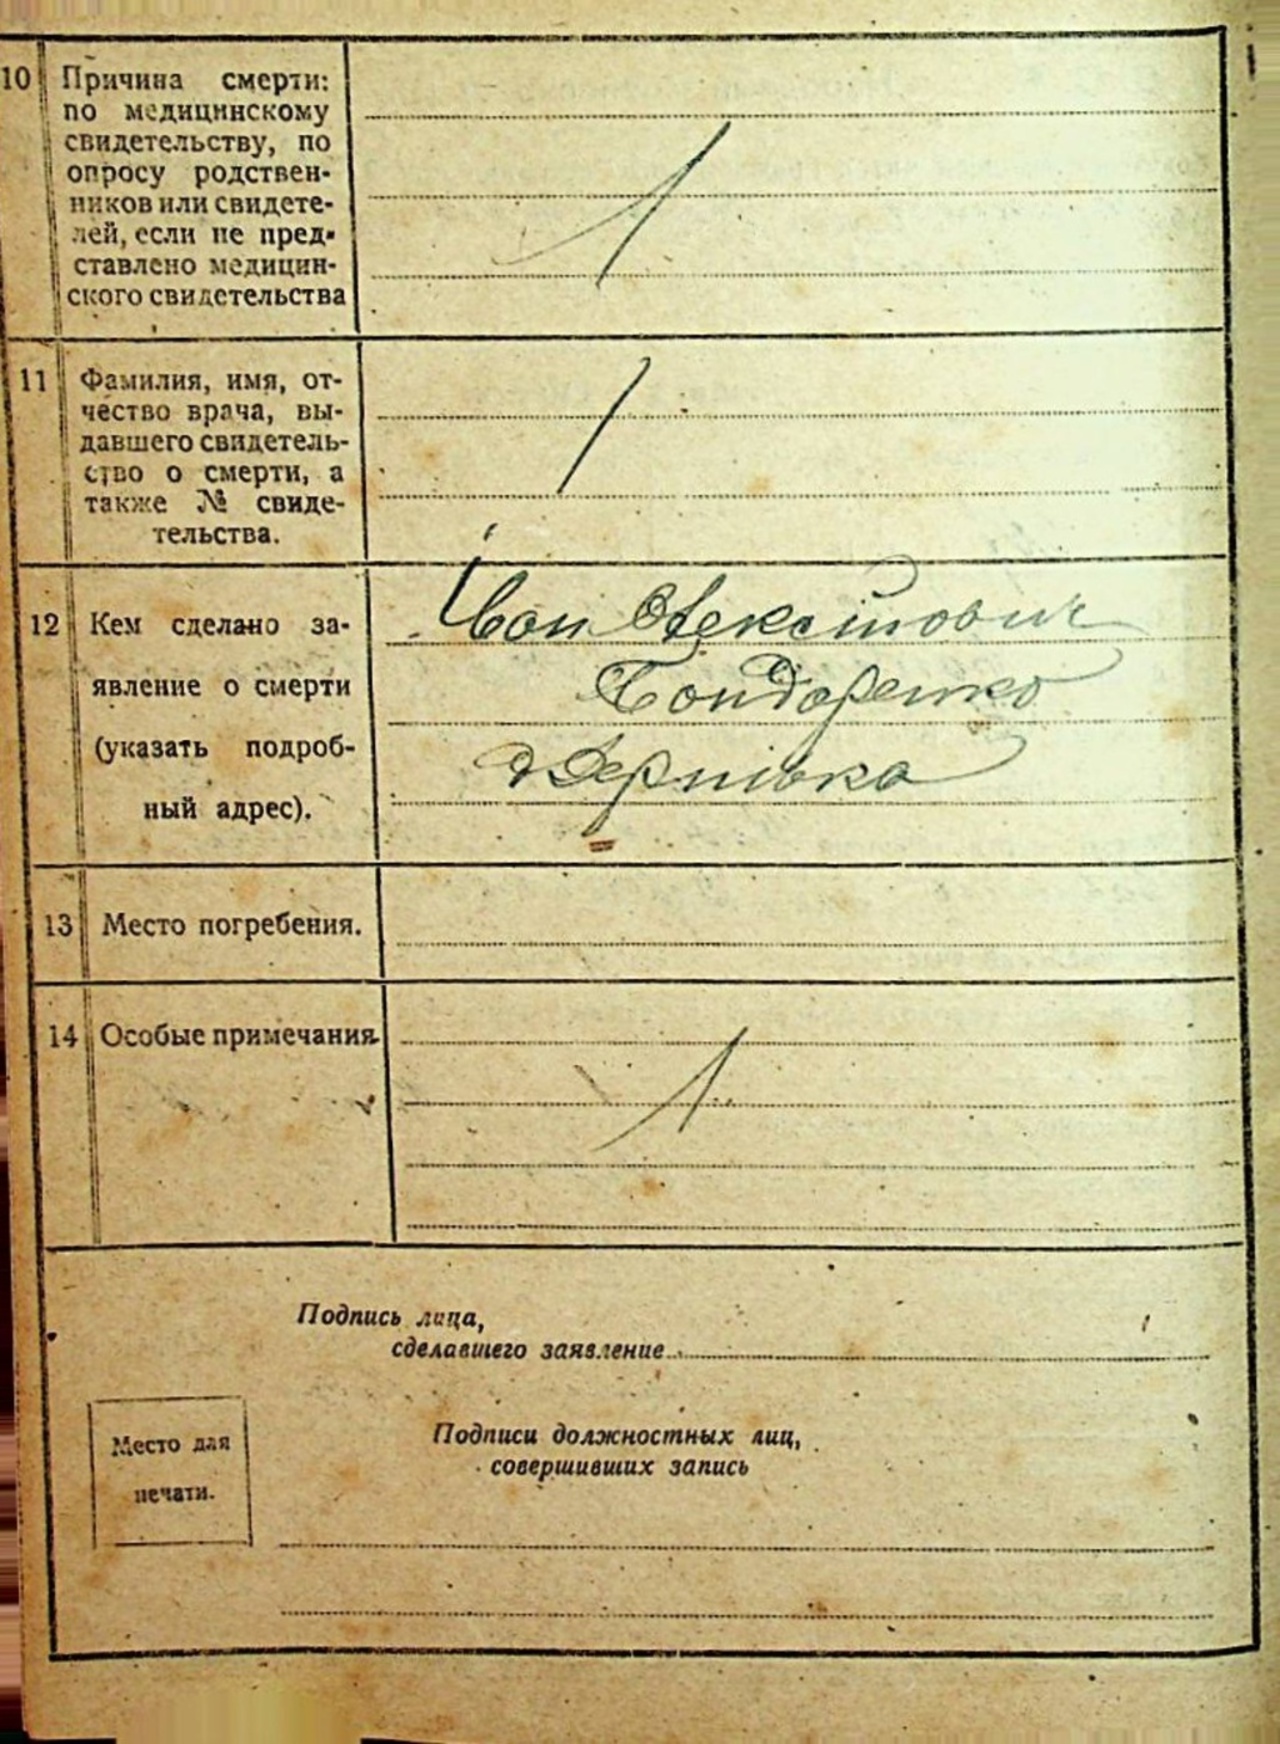 10 Причина смерти:
по медицинскому
свидетельству, по
опросу родствен-
ников или свидете-
лей, если не пред-
ставлено медицин-
ского свидетельства
11 Фамилия, имя, от-
чество врача, вы-
давшего свидетель-
ство о смерти, а
также № свиде-
тельства.
12 Кем сделано за-
явление о смерти
(указать подроб-
ный адрес).
Іван
Бондаренко
13 Место погребения.
14 Особые примечания.
Подпись лица,
сделавшего заявление
Место для
печати.
Подписи должностных лиц,
совершивших запись